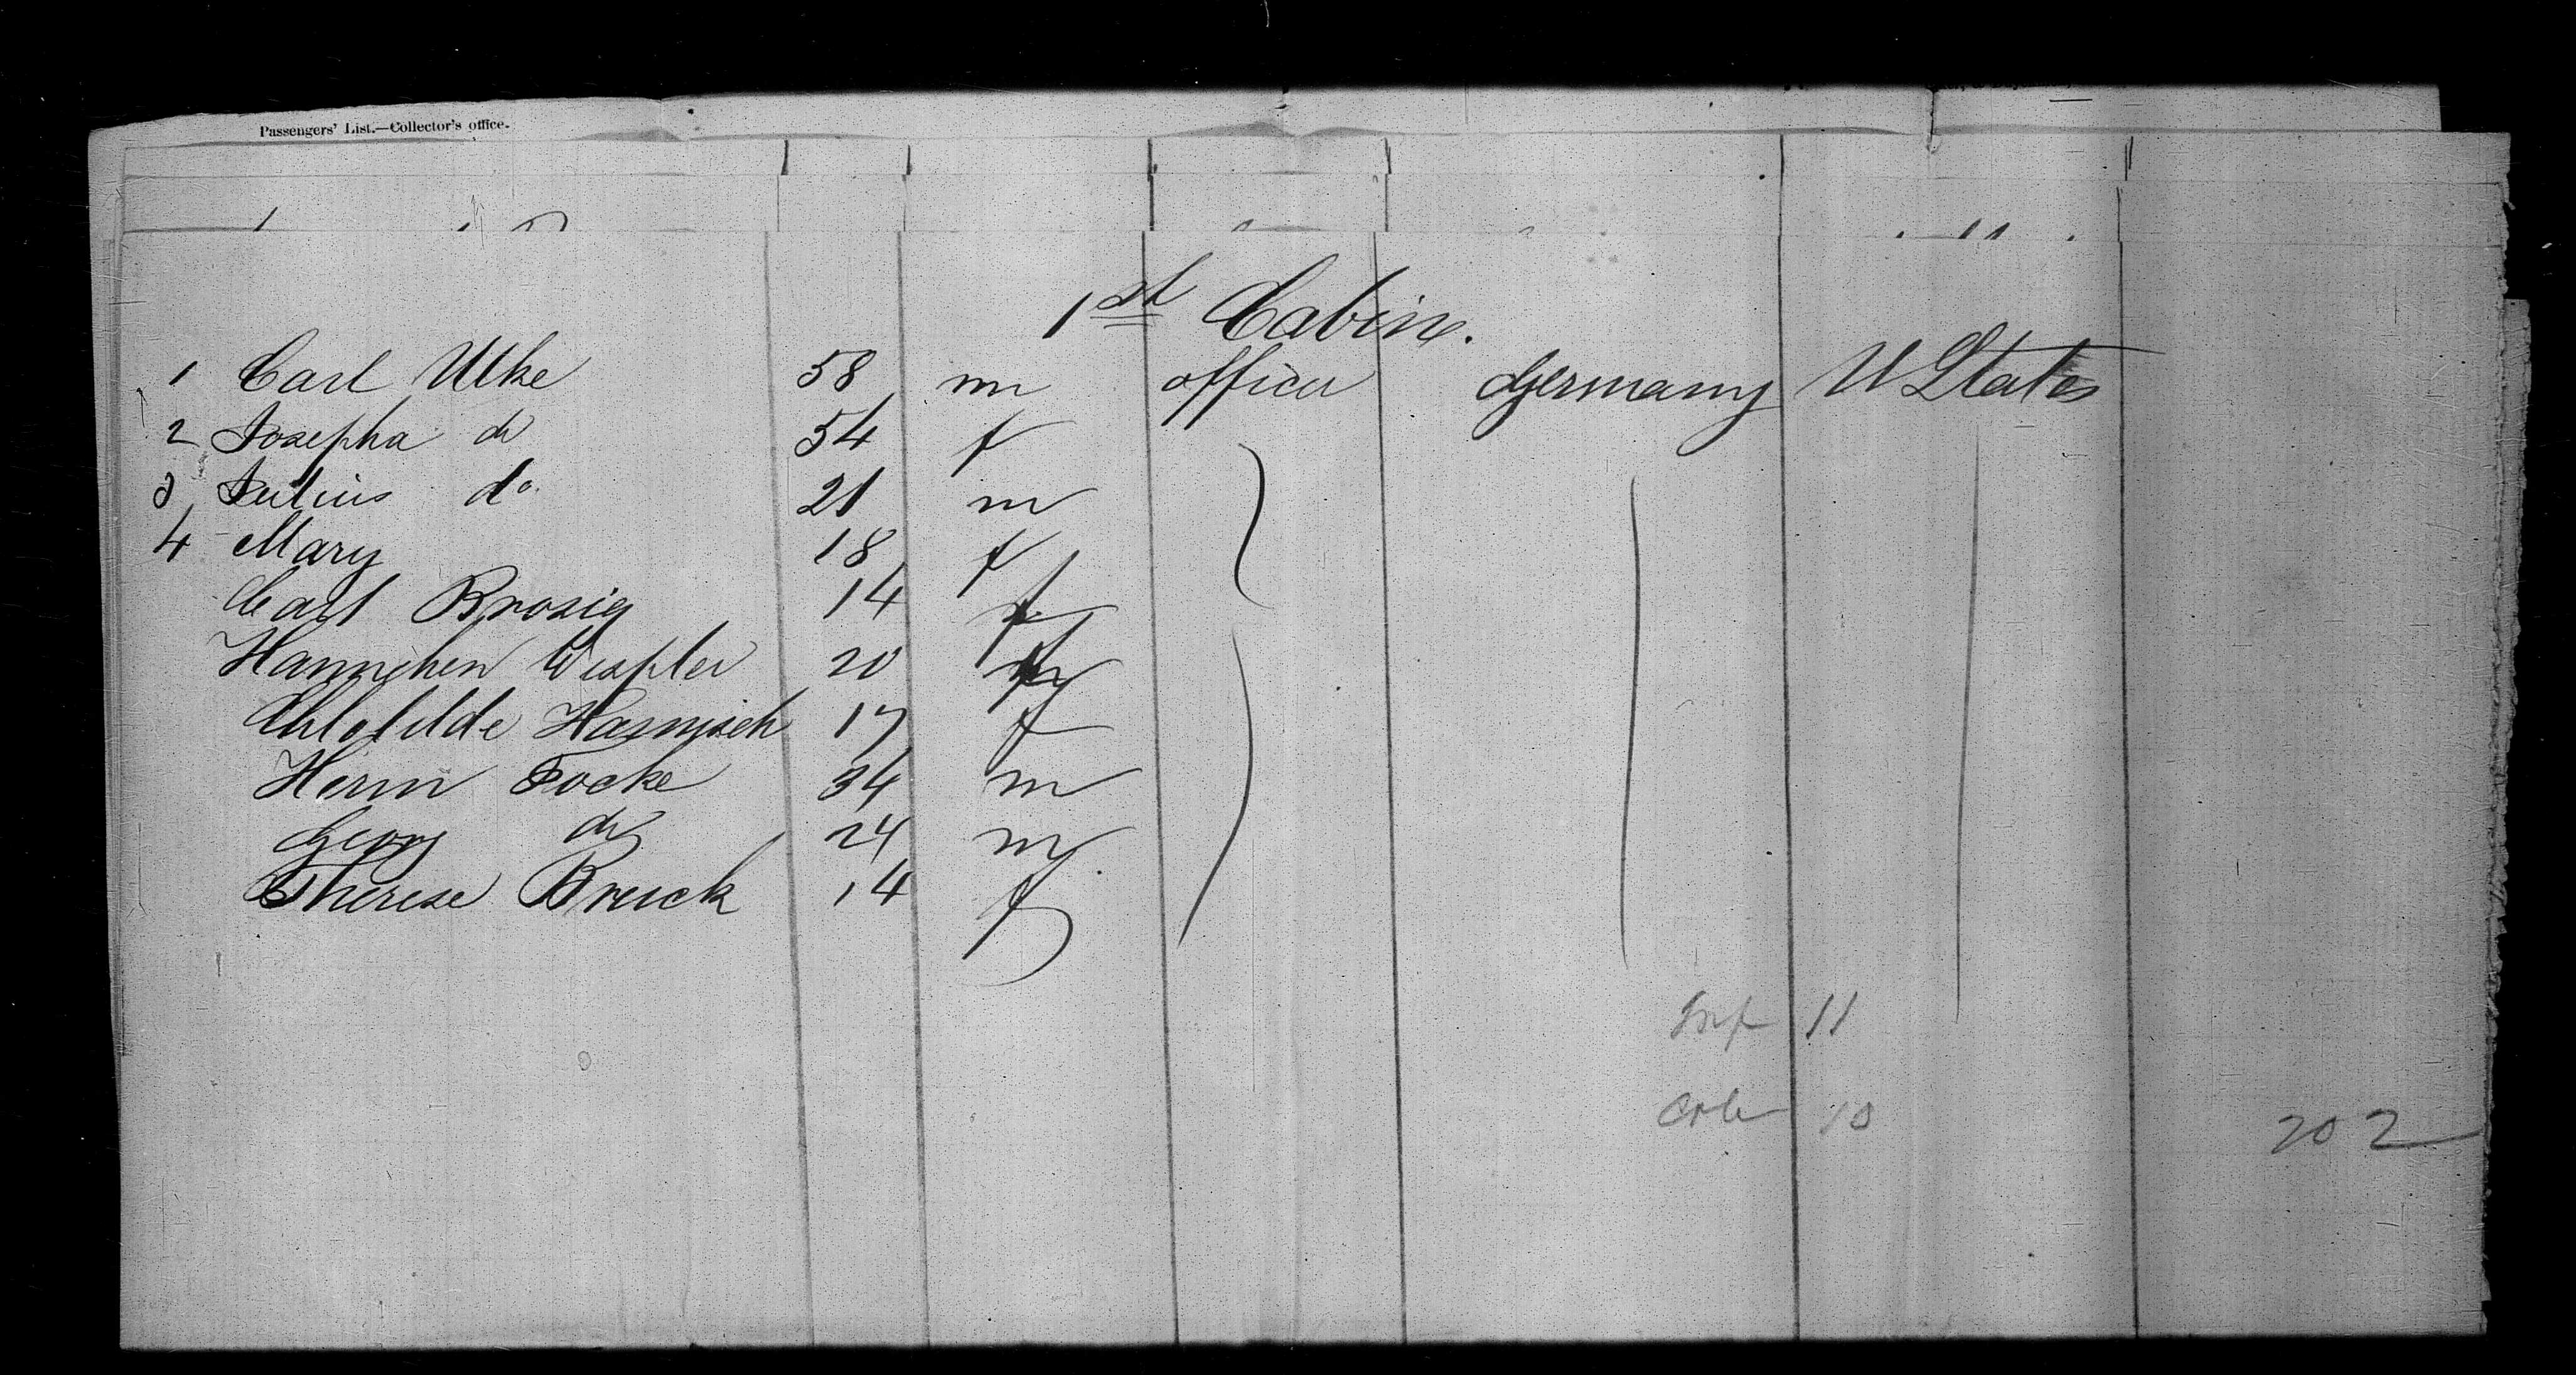 Passengers' List.—Collector's office.
1st Cabine.
1 Carl Ulke 58 m officer Germany U States
2 Josepha do 54 f
3 Julius do. 21 m
4 Mary 18 f
Carl Brosig 14 f
Hannchen 20
Chlotilde Harnisch 17 f
Herm Focke 34 m
Georg do 24 m
Therese Bruck 14 f
11
10
202